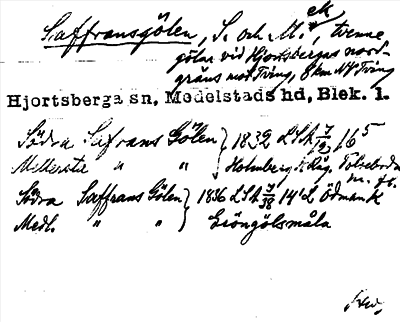 Saffransgölen, S. och M. ek, tvenne
gölar vid Hjortsbergas nord-
gräns mot Tving, 8 km NV Tving
Hjortsberga sn, Medelstads hd, Blek. l.
Södra Safrans Gölen } 1832 LSA 7/12 16 5
Mellersta " " Holmberg
Södra Saffrans Gölen } 1836 LSA 7/38 14' L Ödmank
Medl. " " Eriöngölsmåla